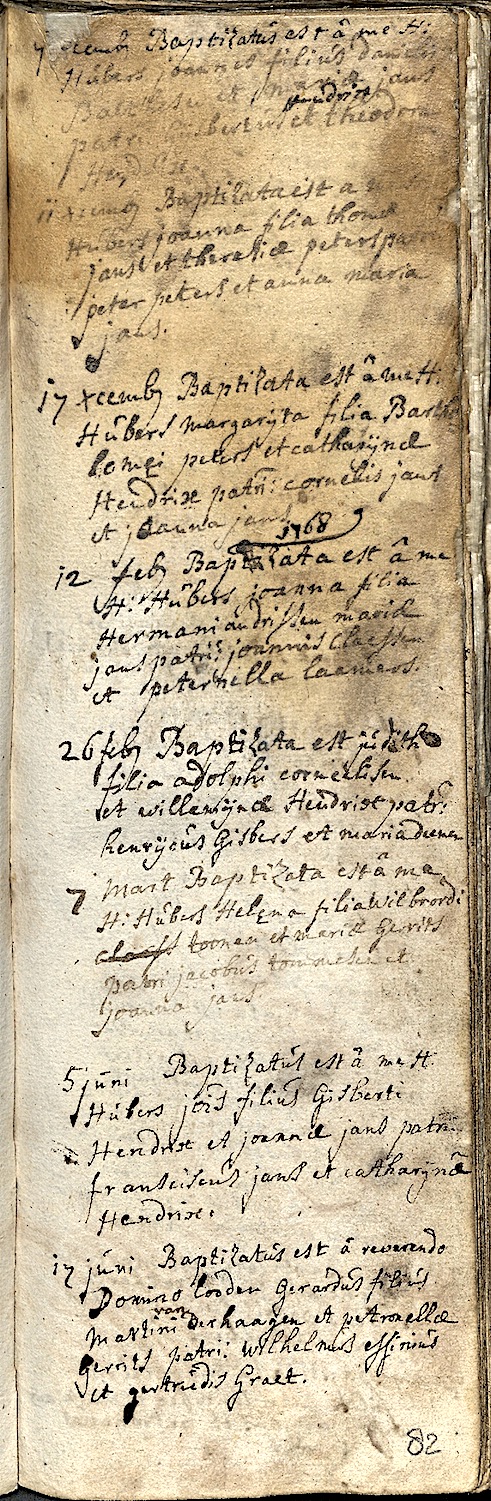 7 xcemb Baptizatus est â me H:
Hùbers joannes filiùs
et mariæ jans
Hendrix
patri Gisbertùs et theodora
11 xcemb Baptizata est a
Hùbers joanna filia thomæ
jans et theresiæ peters patri
peter peters et anna maria
jans.
17 xcemb Baptizata est â me H:
Hùbers margarijta filia Bartho
lomei peters et catharijnæ
Hendrix patri: cornelis jans
et joanna jans
1768
12 feb Baptizata est â me
H: Hùbers joanna filia
Hermani andrissen mariæ
jans patri: joannis Claessen
et peternella laamers.
26 feb Baptizata est judith
filia adolphi cornelisen
et willemijnæ Hendrix patri:
henrijcùs Gisbers et maria
7 Mart Baptizata est â me
H: Hùbers Helena filia Wilbrordi
claess toonen et mariæ Gerrits
patri jacobùs tommesen et
joanna jans
5 jùni Baptizatùs est â me H:
Hùbers joës filiùs Gisberti
Hendrix et joannæ jans patri:
franciscùs jans et catharijnæ
Hendrix.
17 jùni Baptizatùs est â reverendo
Domino looden Gerardùs filiùs
van
Martini derhaagen et petronellæ
Gerrits patri: wilhelmùs essinùs
et gertrùdis Graet.
82